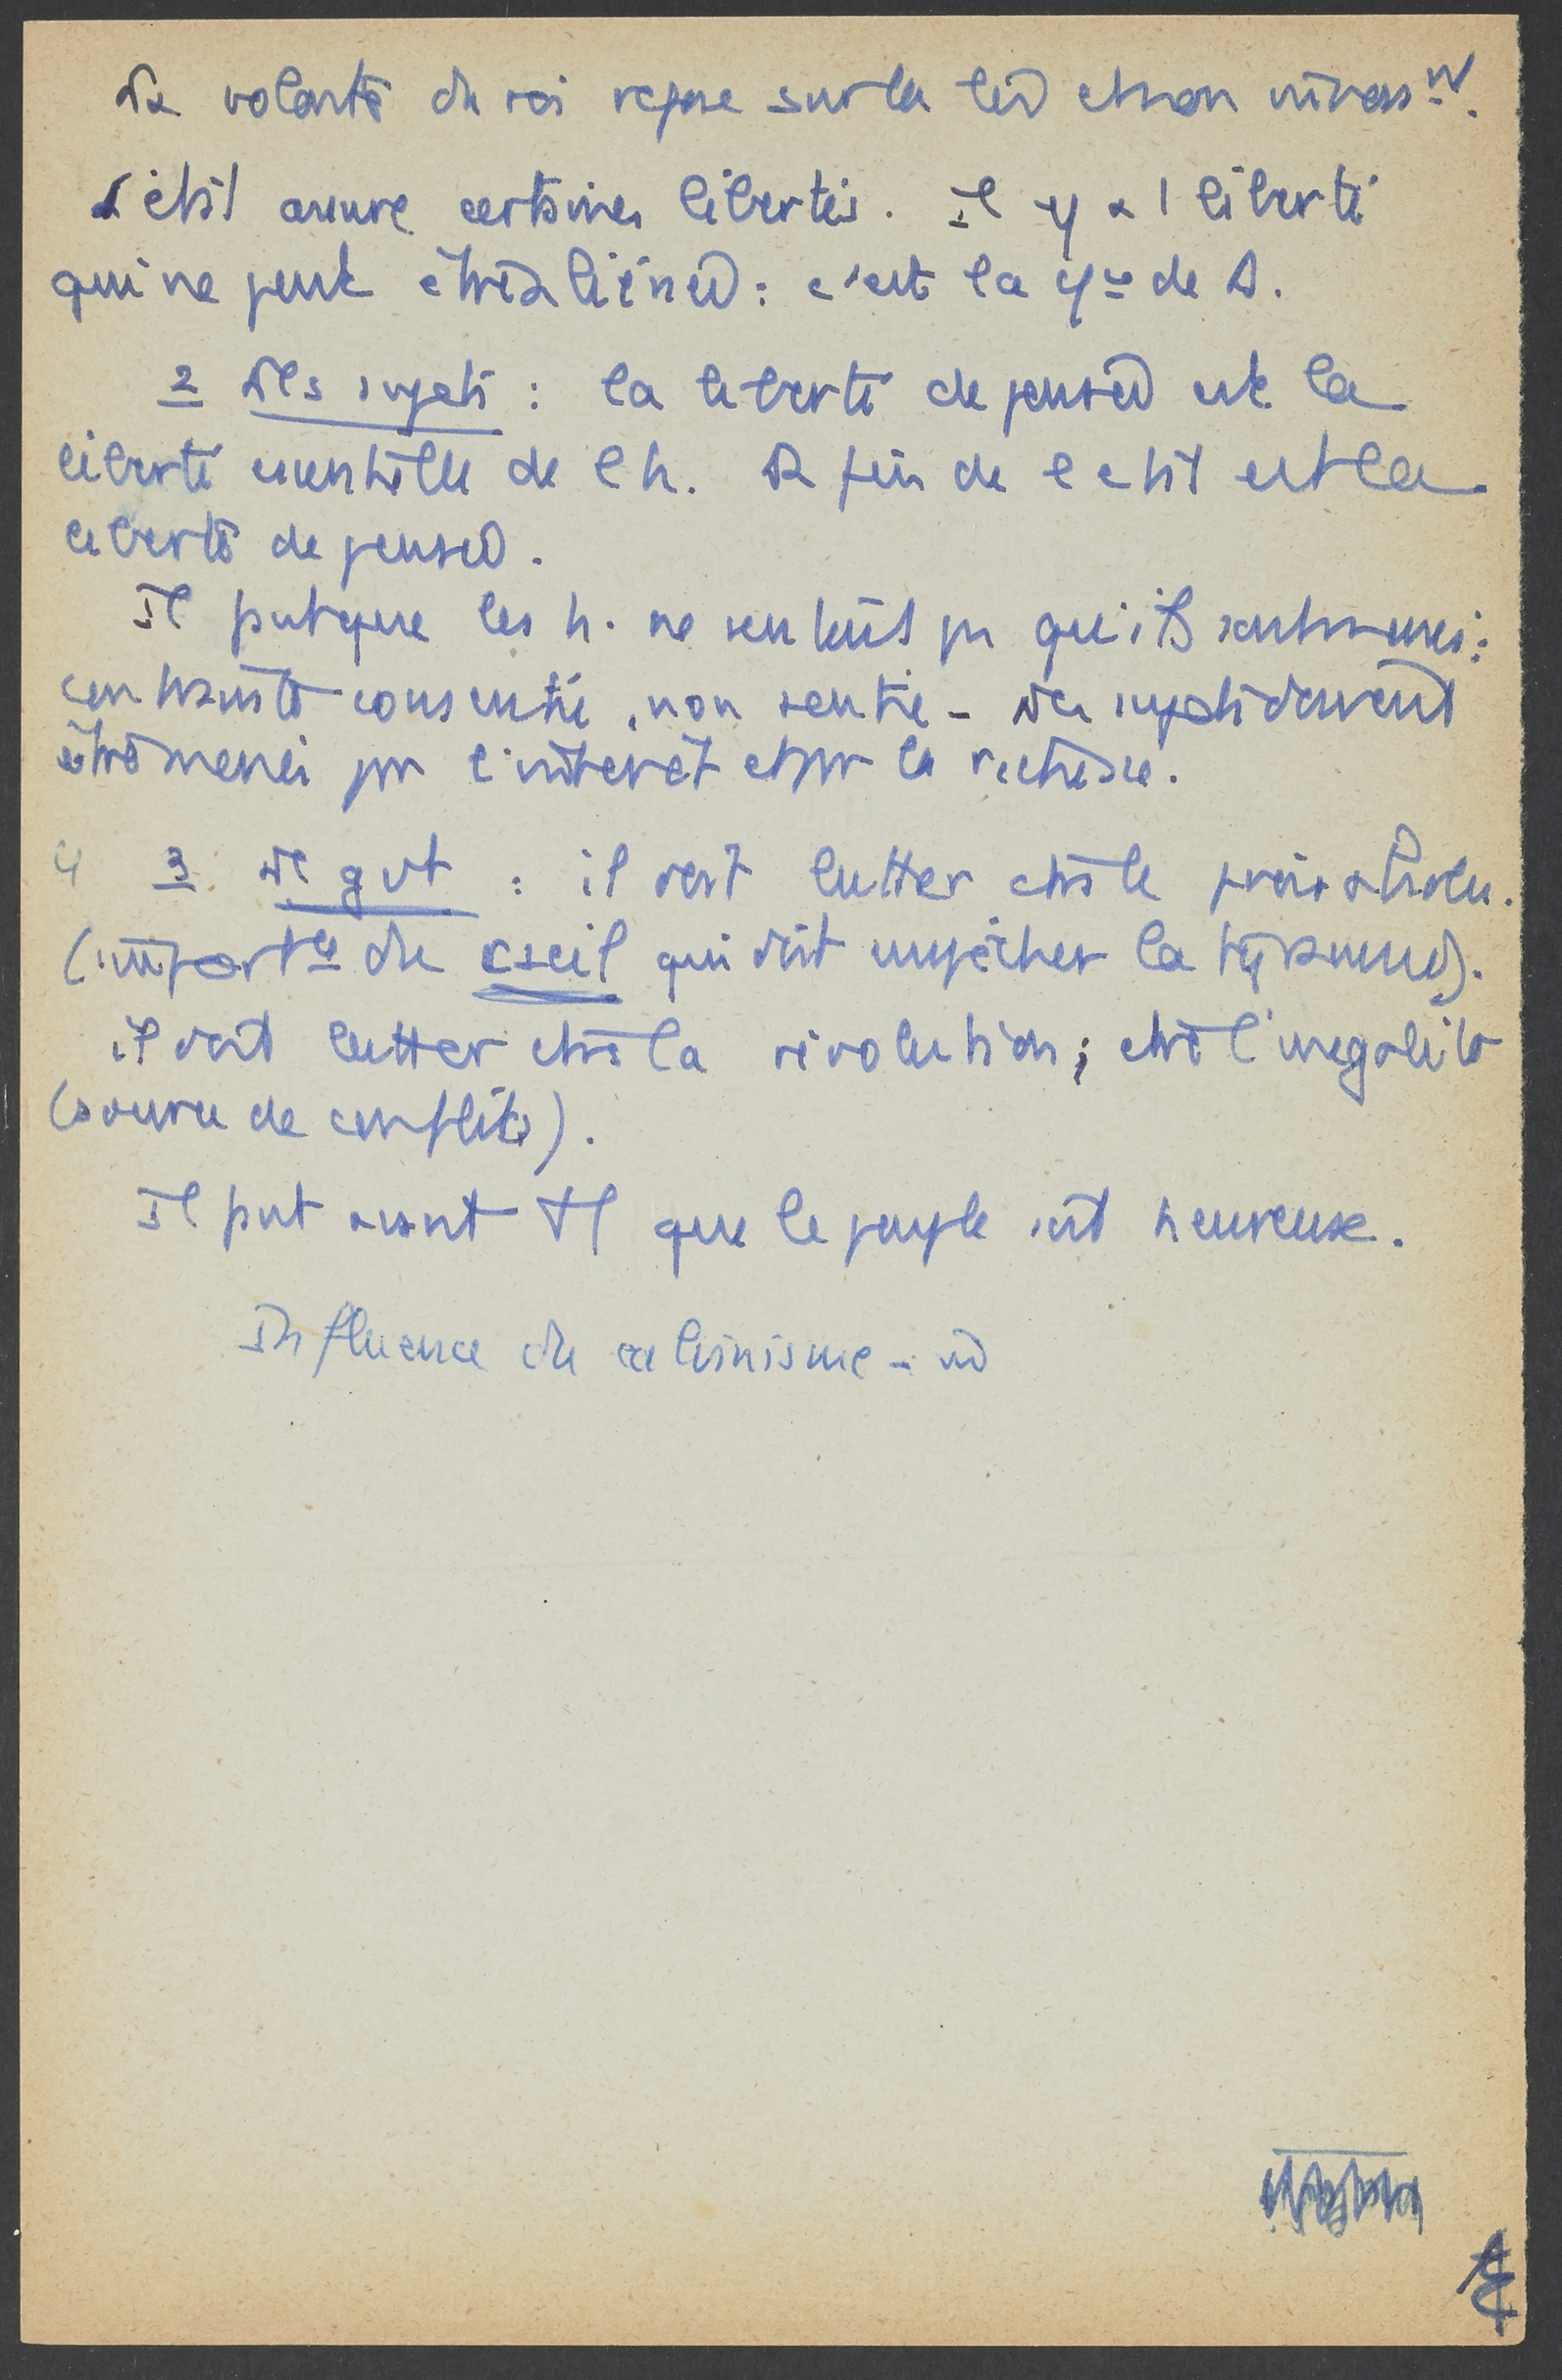 La volonté du roi repose sur la loi et non invers^nt.
L'état assure certaines libertés. Il y a 1 liberté
qui ne peut être aliénée : c'est la de D.
2 Les sujets : la liberté de pensée est la
liberté essentielle de l h. La fin de l état est la
liberté de pensée.
Il faut que les h. ne sentent pas qu'ils sont menés :
contrainte consentie, non sentie - Les sujets doivent
être menés par l'intérêt et par la richesse.
4 3 Le gvt : il doit lutter ctre le pouvoir absolu.
(import^ce du cseil qui doit empêcher la tyrannie).
il doit lutter ctre la révolution ; ctre l'inégalité
(source de conflits).
Il faut avant tt que le peuple soit heureux.
Influence du calvinisme -